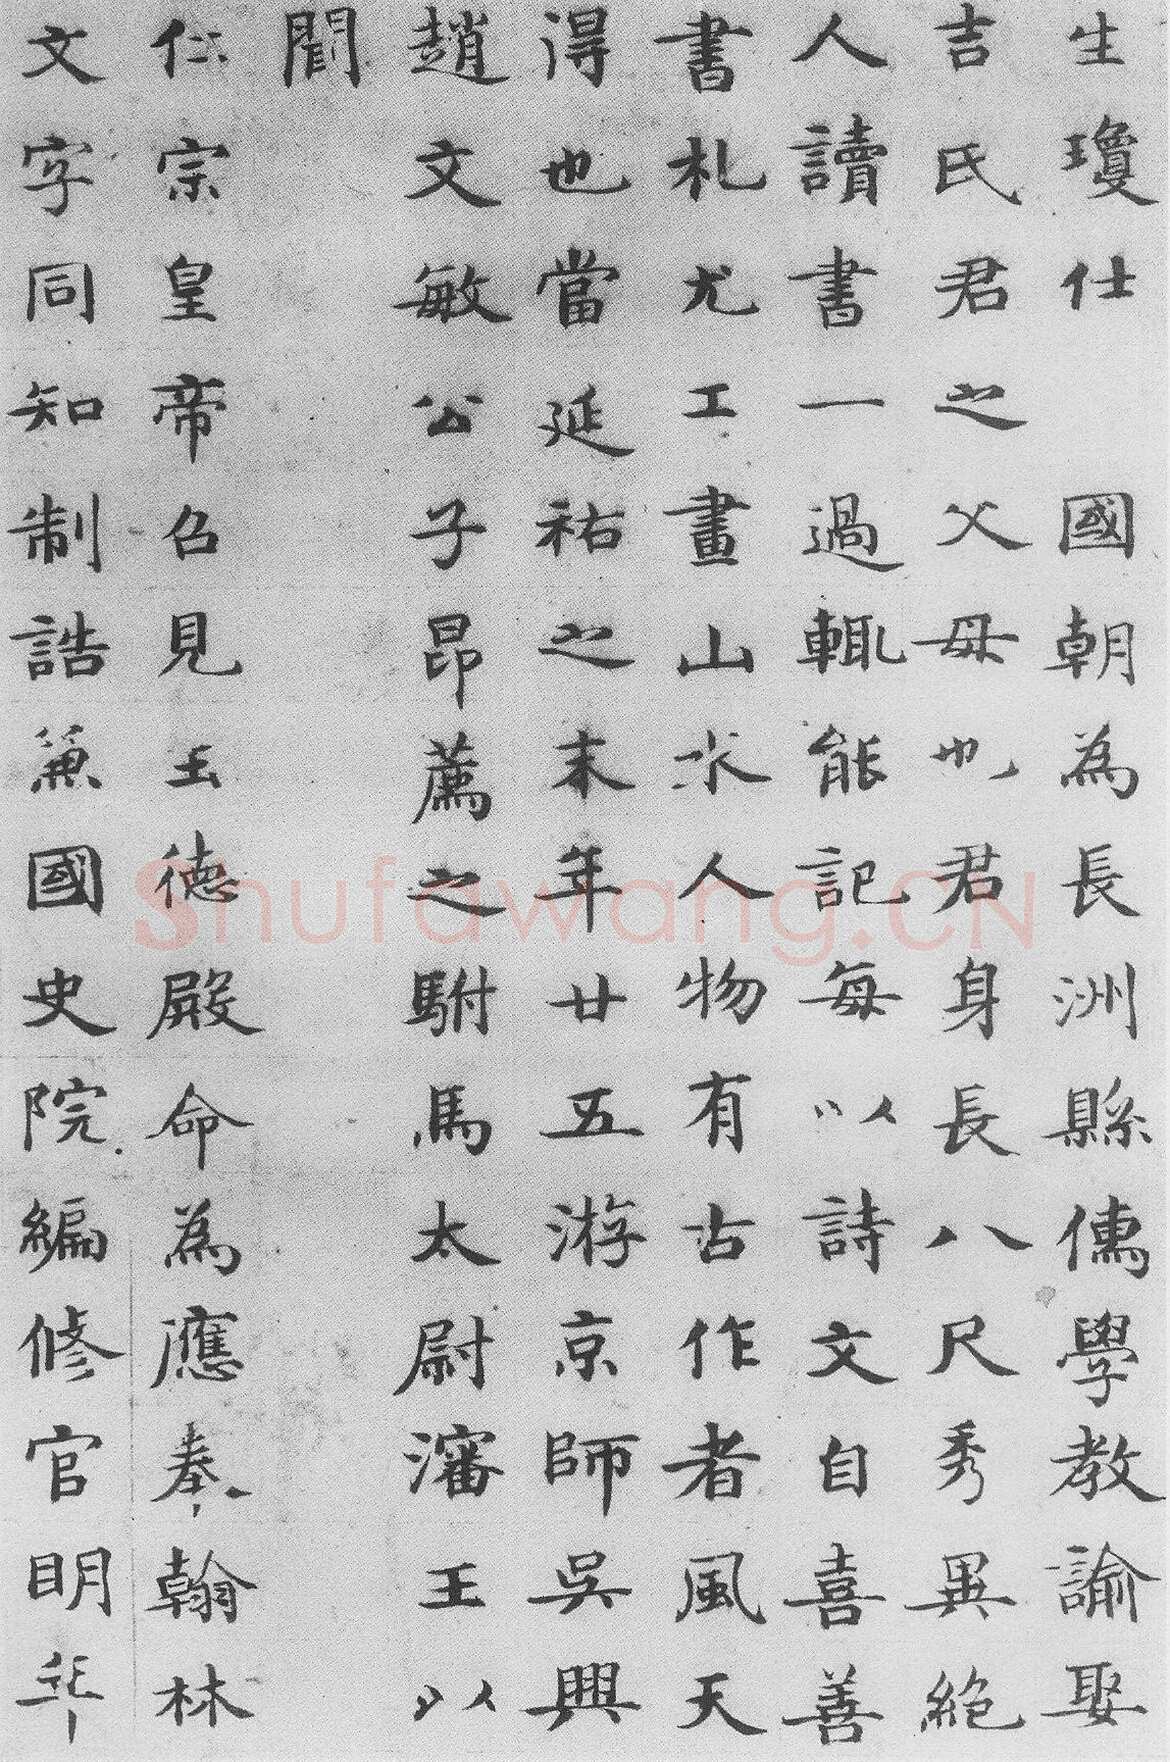 生瓊仕　國朝為長洲縣儒學教諭娶
吉氏君之父母也君身長八尺秀異絕
人讀書一過輒能記每以詩文自喜善
書札尤工畫山水人物有古作者風天
得也當延祐之末年廿五游京師吳興
趙文敏公子昂薦之駙馬太尉瀋王以
聞
仁宗皇帝召見玉德殿命為應奉翰林
文字同知制誥兼國史院編修官明年
Shufawang.CN